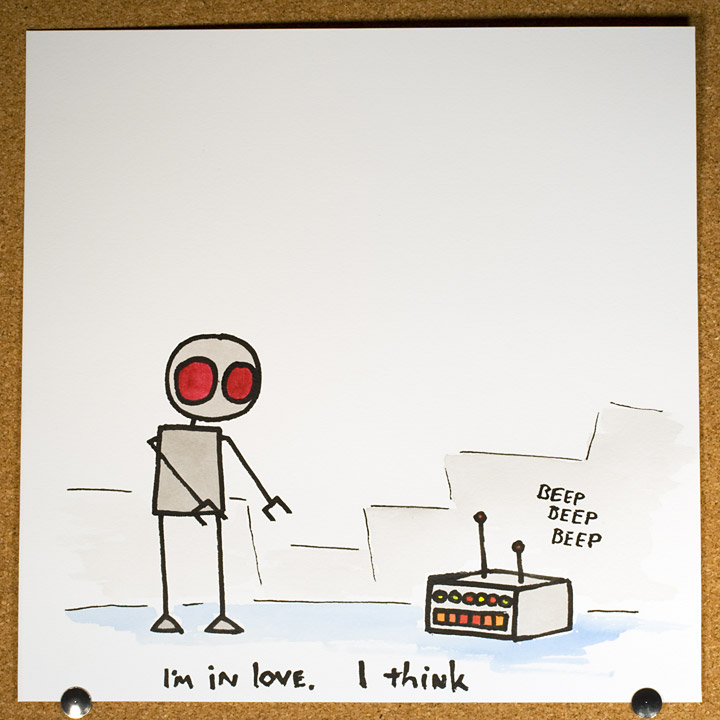 BEEP
BEEP
BEEP
I'm in love. I think